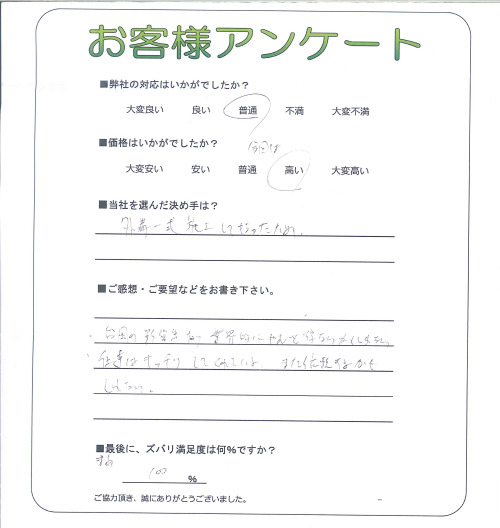 お客様アンケート
■弊社の対応はいかがでしたか?
大変良い 良い 普通 不満 大変不満
■価格はいかがでしたか? 今回は
大変安い 安い 普通 高い 大変高い
■当社を選んだ決め手は?
外 一式 施工して ため。
■ご感想・ご要望などをお書き下さい。
台風の 業界的に
仕事はキッチリして また依頼するかも
しれない。
■最後に、ズバリ満足度は何%ですか?
100 %
ご協力頂き、誠にありがとうございました。